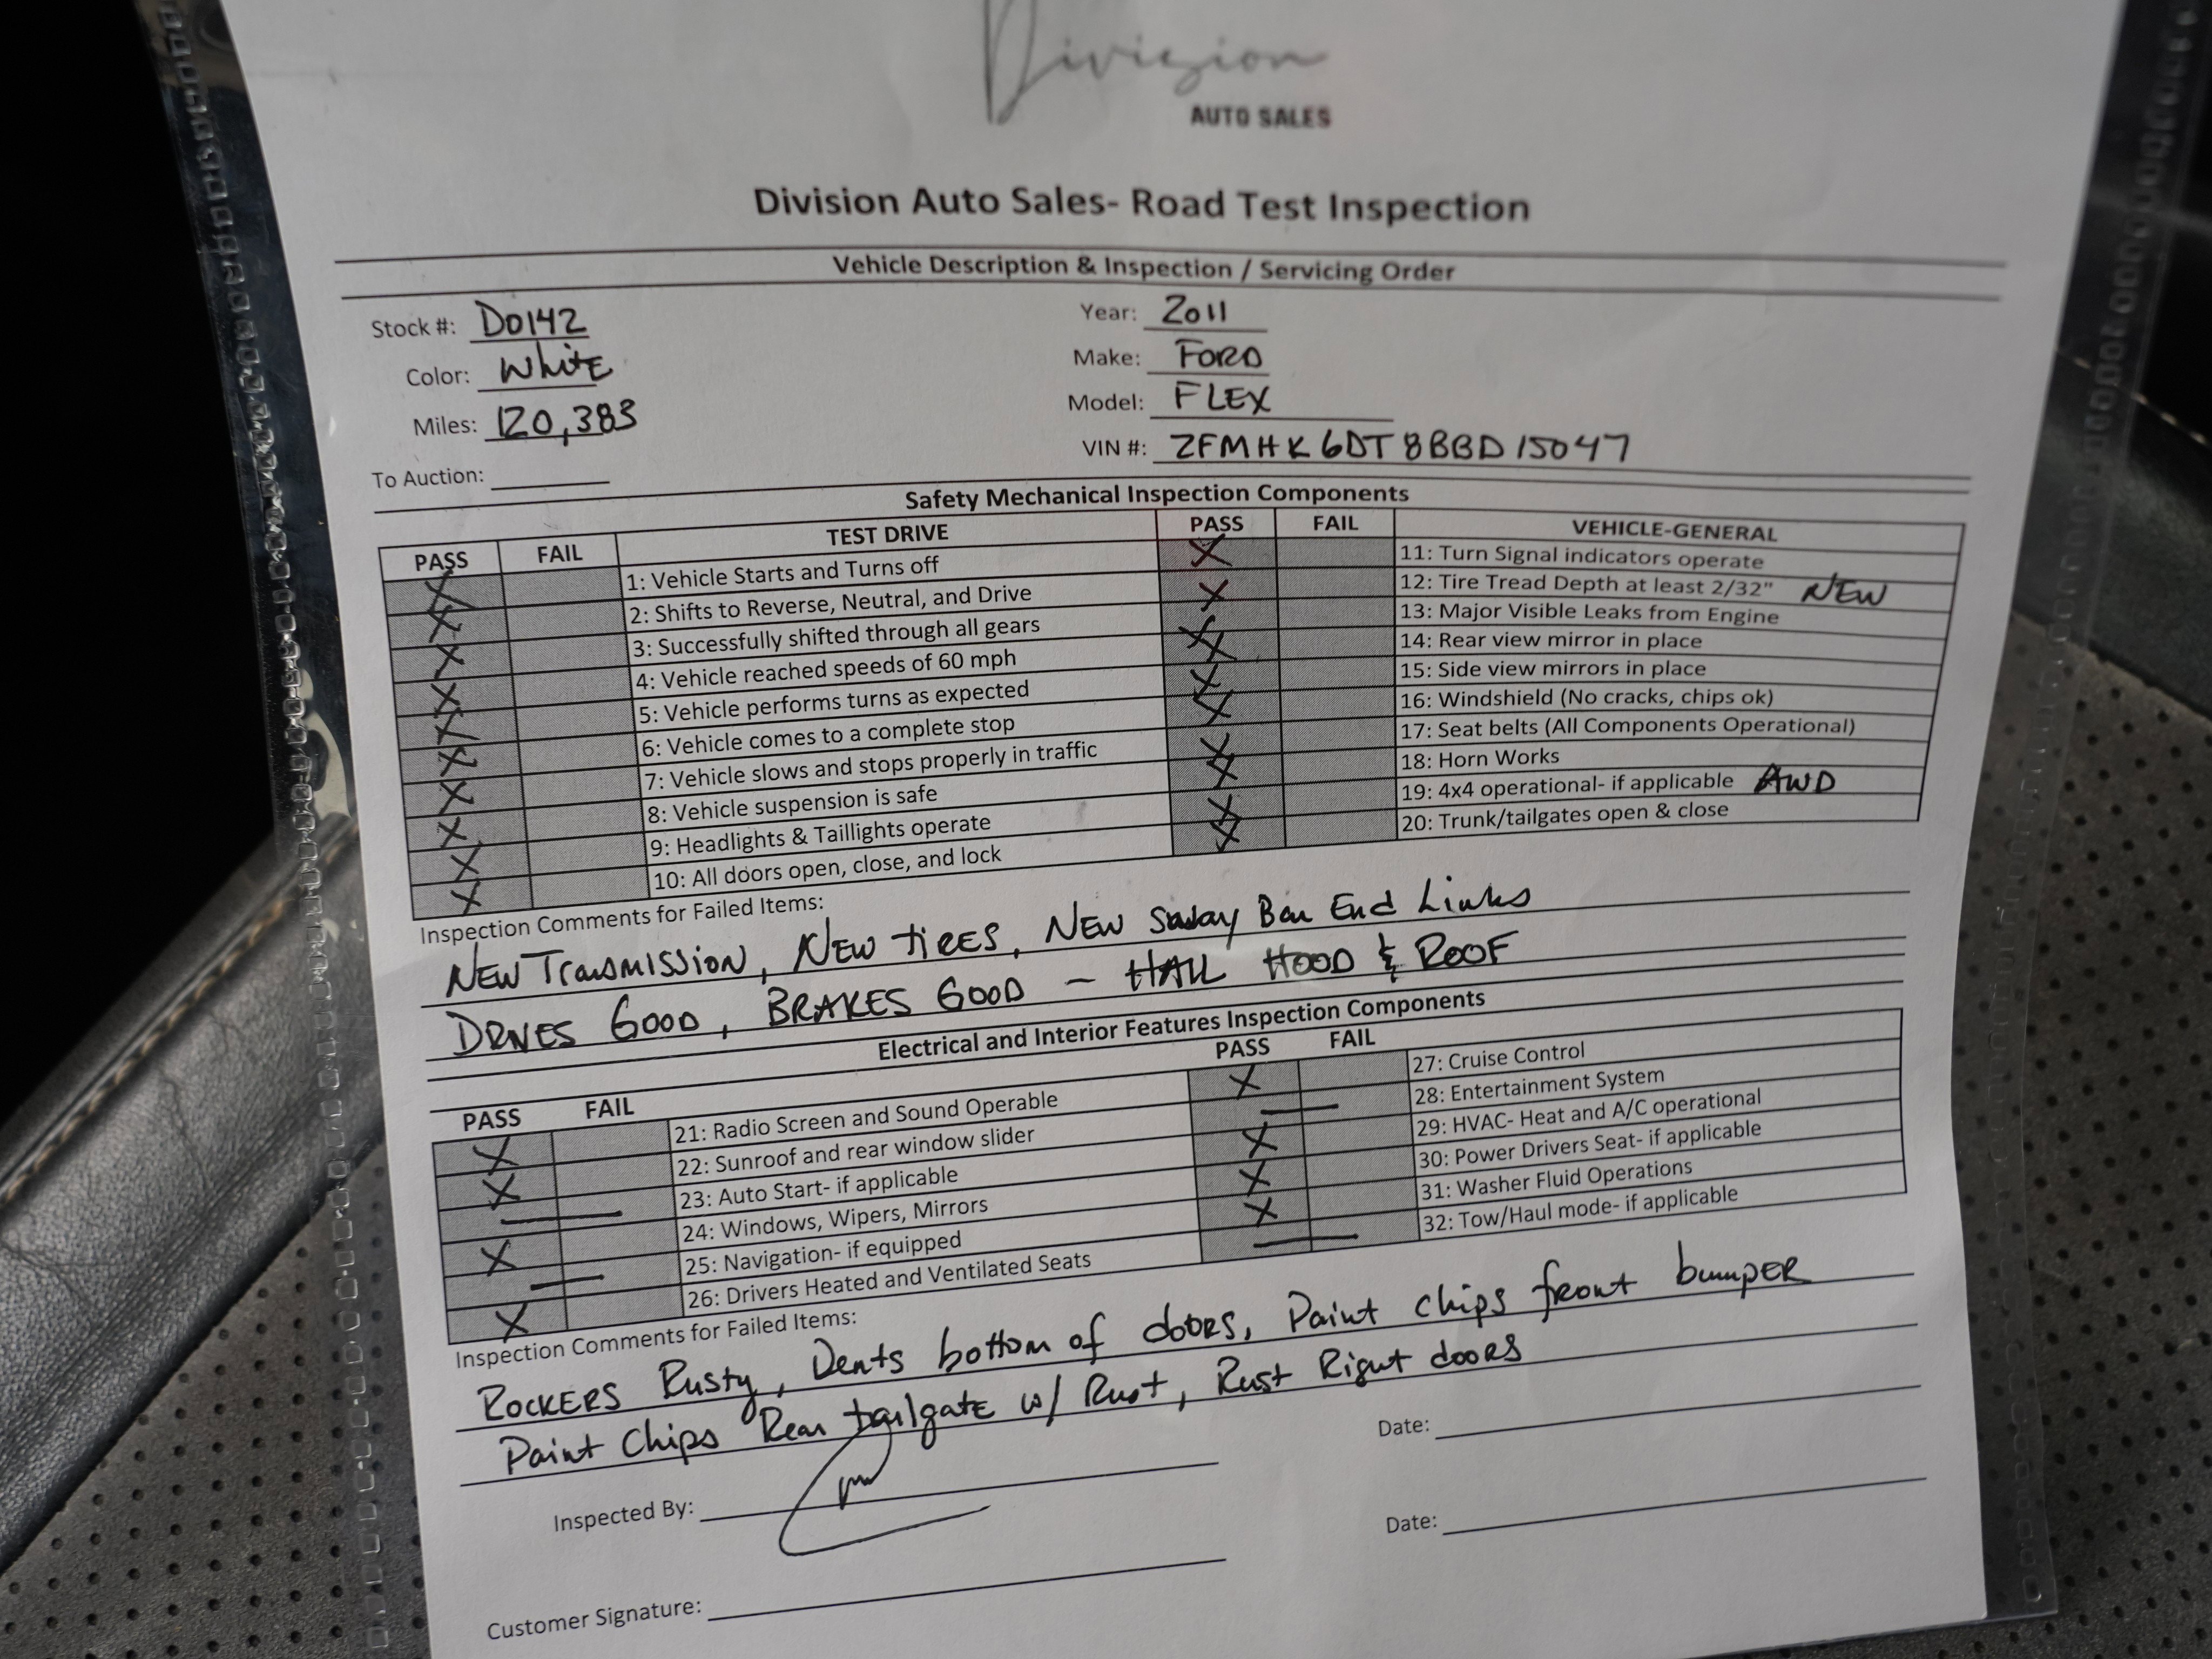 Division
AUTO SALES
Division Auto Sales- Road Test Inspection
Vehicle Description & Inspection / Servicing Order
Stock #: D0142
Year: 2011
Color: White
Make: FORD
Miles: 120,383
Model: FLEX
To Auction:
VIN #: 2FMHK6DT8BBD15047
Safety Mechanical Inspection Components
PASS FAIL TEST DRIVE PASS FAIL VEHICLE-GENERAL
X 1: Vehicle Starts and Turns off X 11: Turn Signal indicators operate
X 2: Shifts to Reverse, Neutral, and Drive X 12: Tire Tread Depth at least 2/32" NEW
X 3: Successfully shifted through all gears X 13: Major Visible Leaks from Engine
X 4: Vehicle reached speeds of 60 mph X 14: Rear view mirror in place
X 5: Vehicle performs turns as expected X 15: Side view mirrors in place
X 6: Vehicle comes to a complete stop X 16: Windshield (No cracks, chips ok)
X 7: Vehicle slows and stops properly in traffic X 17: Seat belts (All Components Operational)
X 8: Vehicle suspension is safe X 18: Horn Works
X 9: Headlights & Taillights operate X 19: 4x4 operational- if applicable AWD
X 10: All doors open, close, and lock X 20: Trunk/tailgates open & close
Inspection Comments for Failed Items:
NEW Transmission, NEW tiRES, NEW Sway Bar End Links
DRIVES GOOD, BRAKES GOOD - HAIL HOOD & ROOF
Electrical and Interior Features Inspection Components
PASS FAIL PASS FAIL
X 21: Radio Screen and Sound Operable X 27: Cruise Control
X 22: Sunroof and rear window slider — 28: Entertainment System
— 23: Auto Start- if applicable X 29: HVAC- Heat and A/C operational
X 24: Windows, Wipers, Mirrors X 30: Power Drivers Seat- if applicable
— 25: Navigation- if equipped X 31: Washer Fluid Operations
X 26: Drivers Heated and Ventilated Seats — 32: Tow/Haul mode- if applicable
Inspection Comments for Failed Items:
ROCKERS Rusty, Dents bottom of doors, Paint chips front bumper
Paint Chips Rear tailgate w/ Rust, Rust Right doors
Inspected By:
Date:
Customer Signature:
Date: